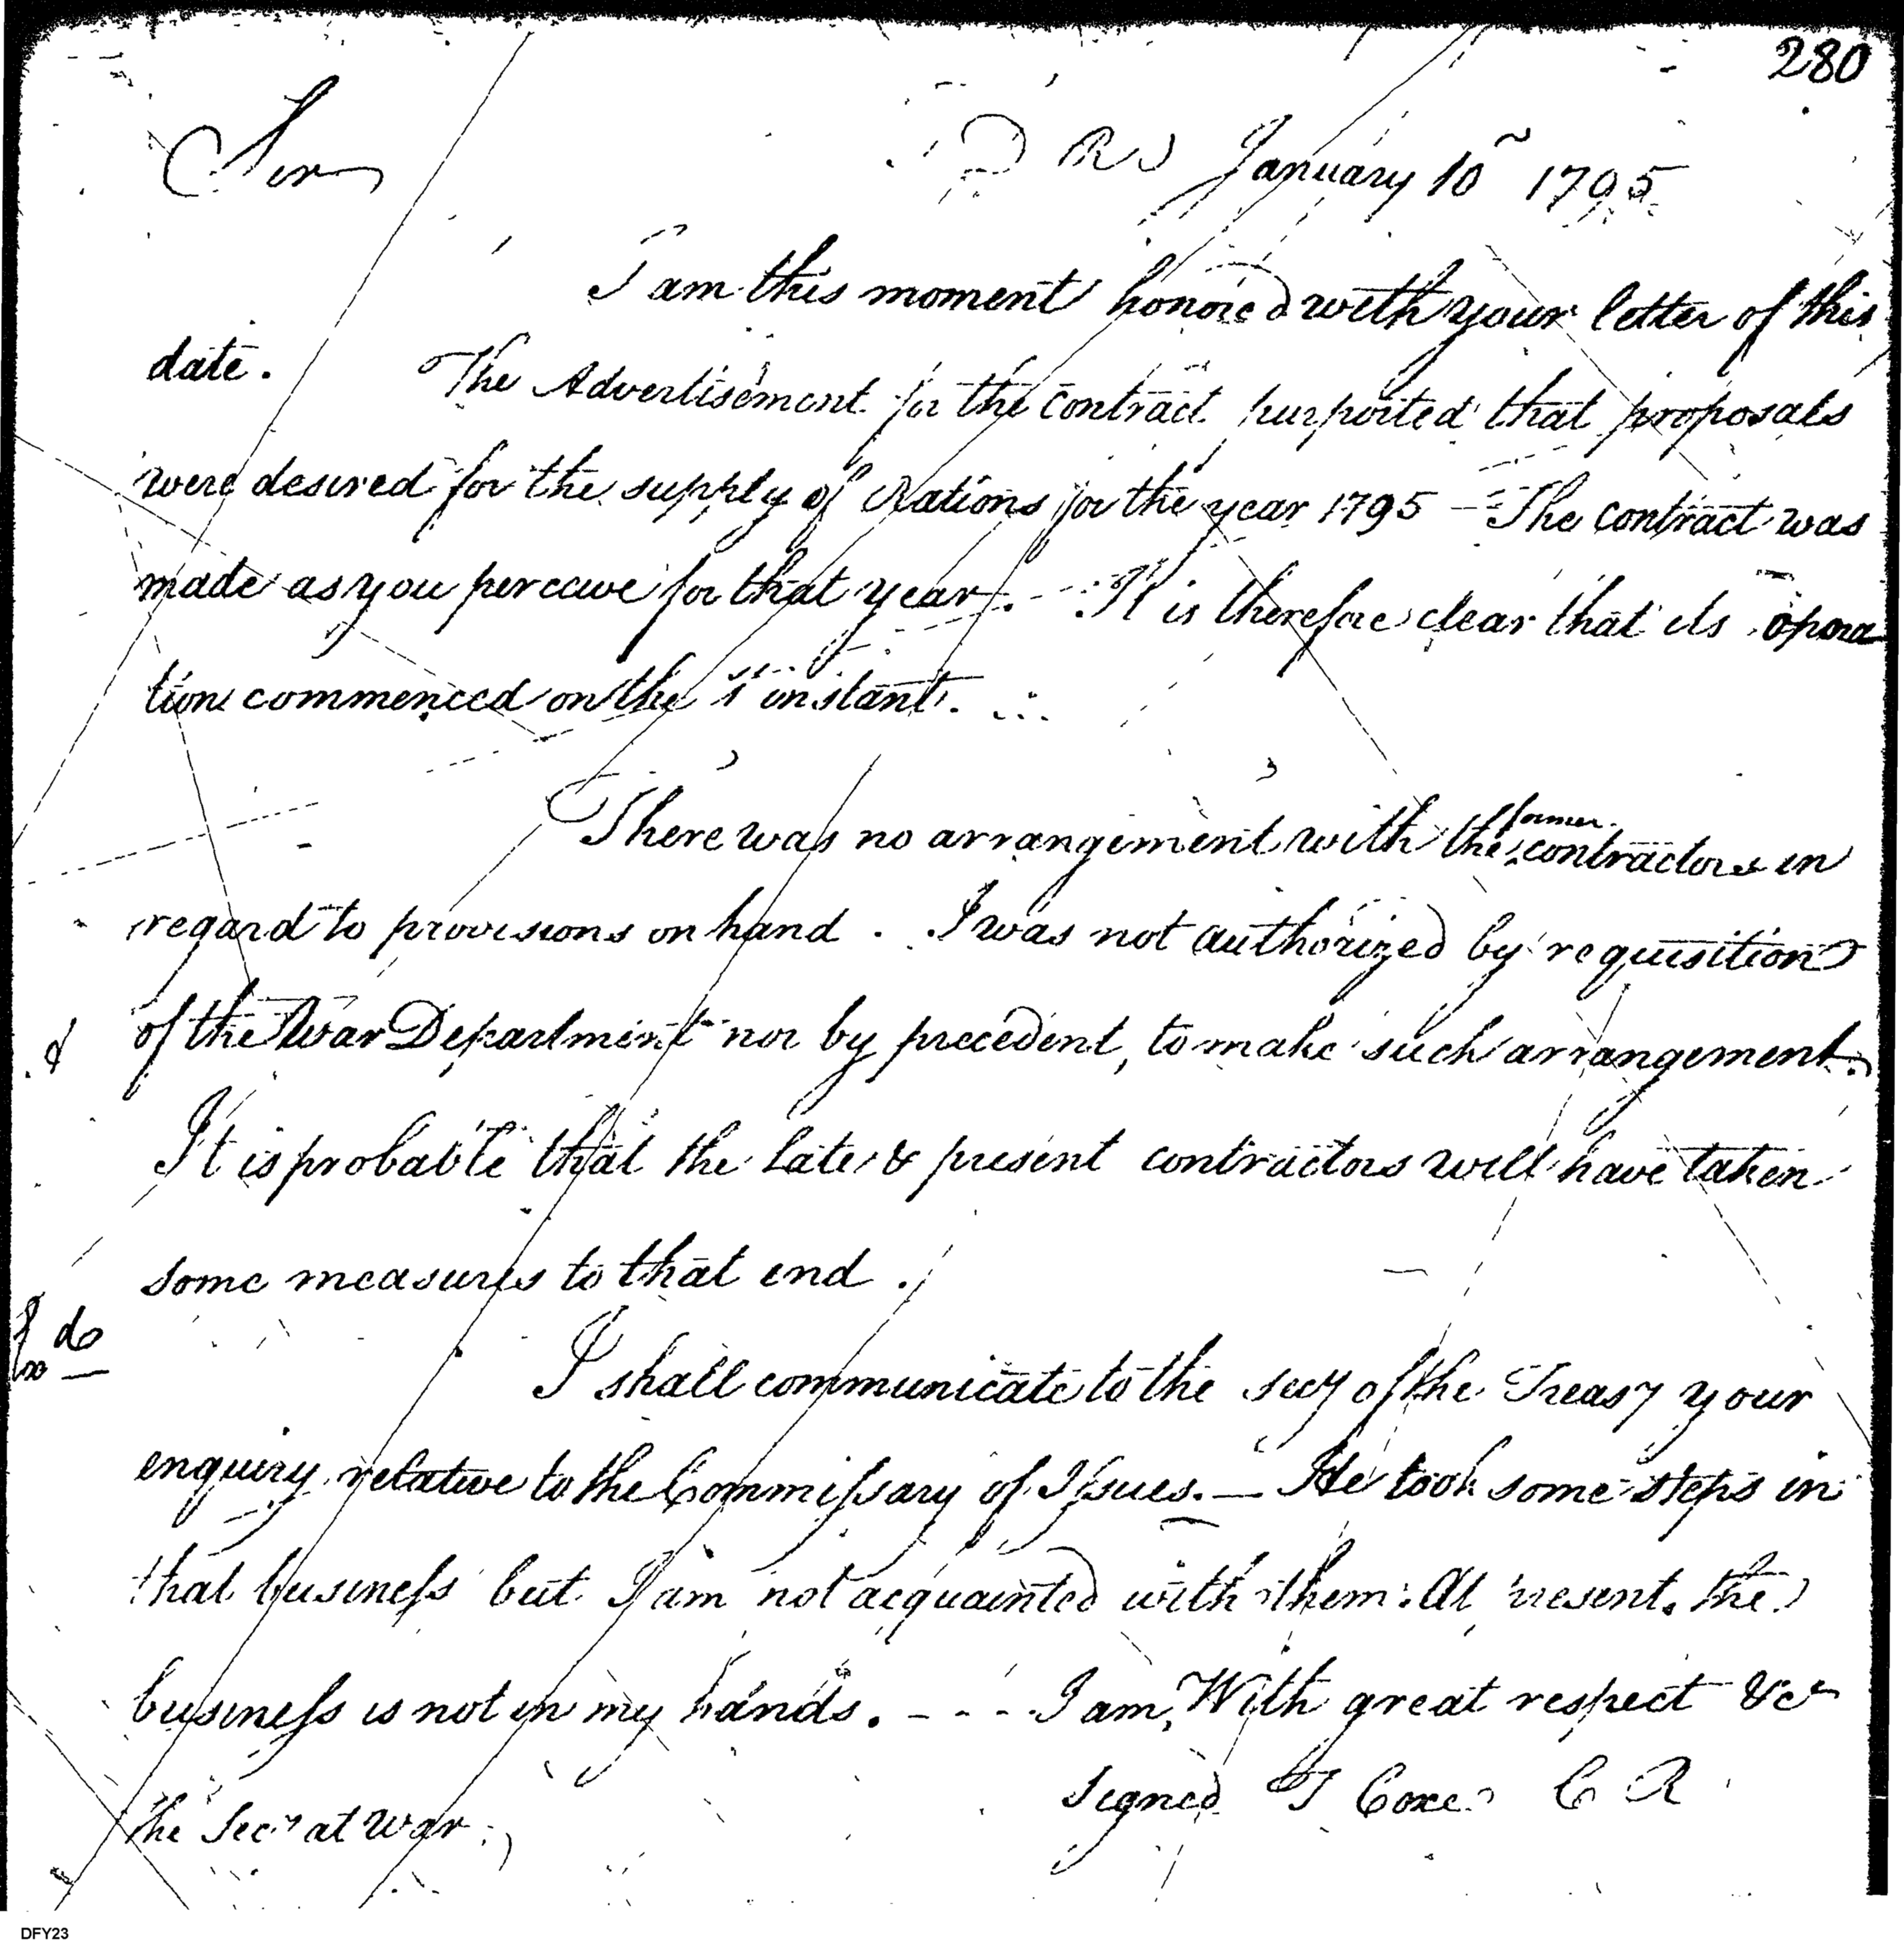 280
Sir
January 10 1795
I am this moment honored with your letter of this
date. The Advertisement for the contract purported that proposals
were desired for the supply of Rations for the year 1795 - The contract was
made as you perceive for that year. - It is therefore clear that its opera
tion commenced on the 1st instant.
There was no arrangement with the former contractors in
regard to provisions on hand. I was not authorized by requisition
of the War Department nor by precedent, to make such arrangement.
It is probable that the late & present contractors will have taken
some measures to that end.
do
I shall communicate to the secy of the Treasy your
enquiry relative to the Commissary of Issues. — He took some steps in
that business but I am not acquainted with them. At present, the
business is not in my hands. - - - I am, With great respect &c
signed T Coxe C R
The Secy at War
DFY23